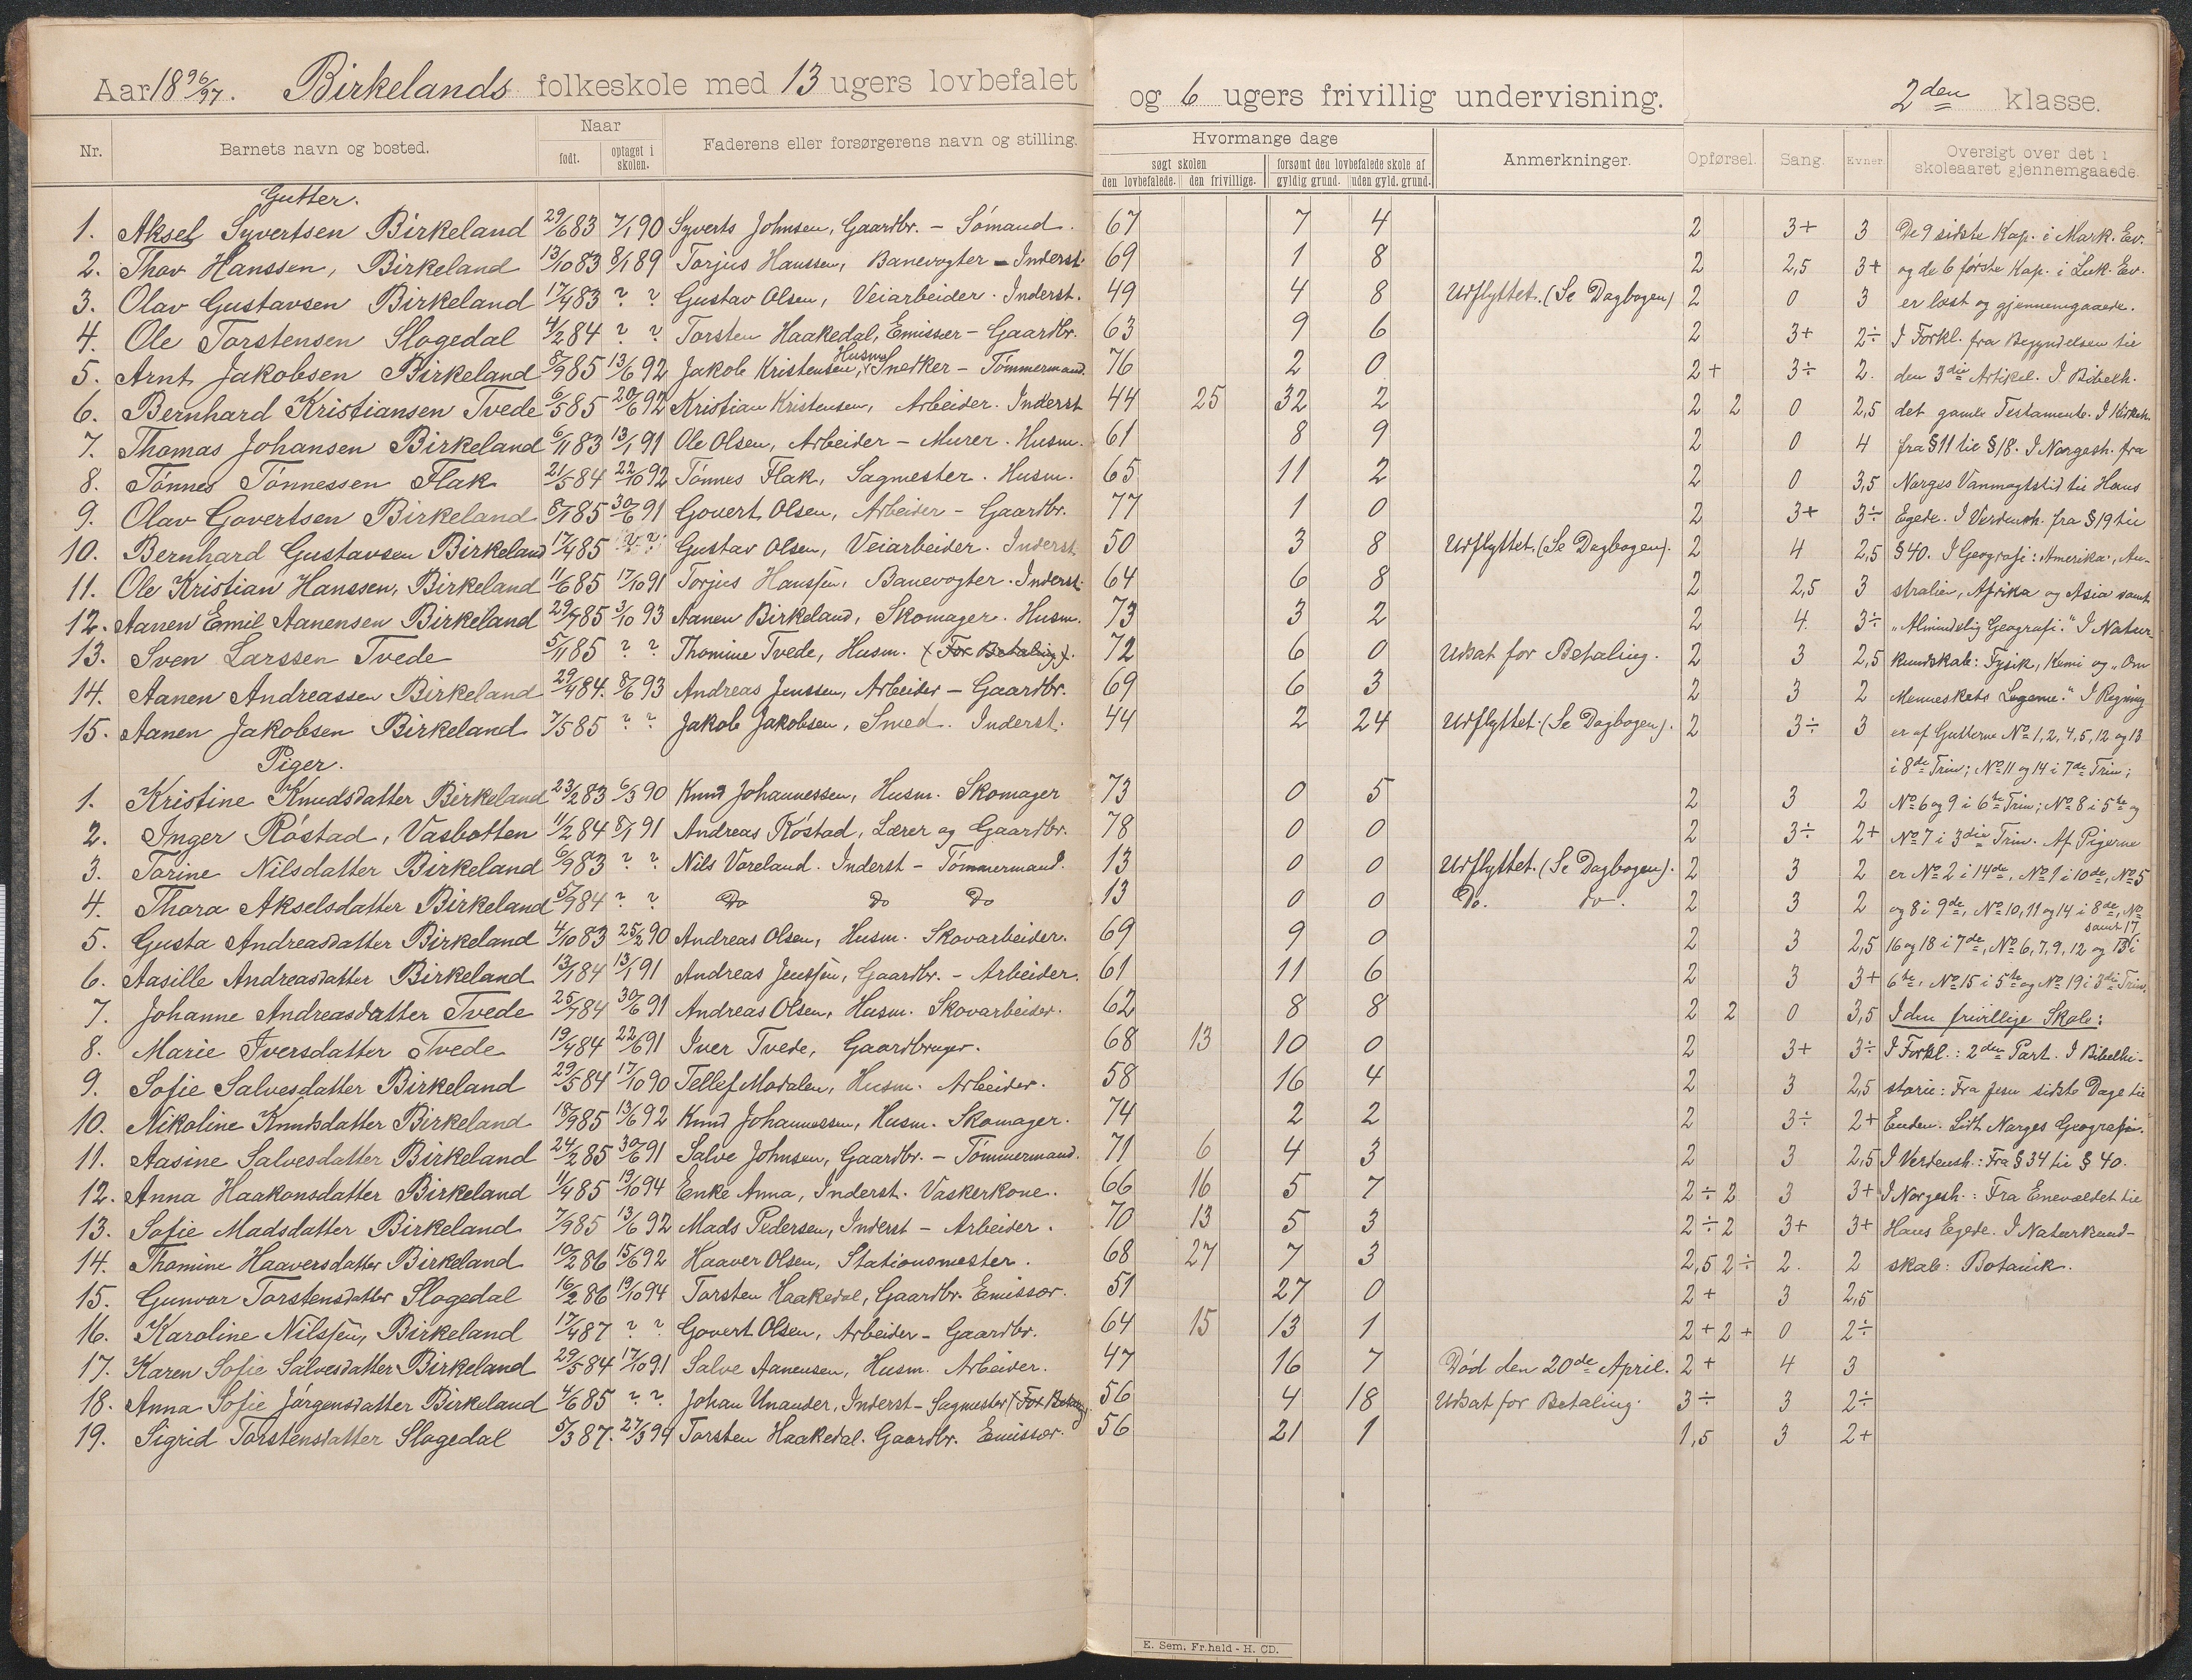 Aar 1896/97. Birkelands folkeskole med 13 ugers lovbefalet og 6 ugers frivillig undervisning. 2den klasse.
Nr. Barnets navn og bosted. Naar født. optaget i skolen. Faderens eller forsørgerens navn og stilling. Hvormange dage søgt skolen den lovbefalede. den frivillige. forsømt den lovbefalede skole af gyldig grund. uden gyld. grund. Anmerkninger. Opførsel. Sang. Evner. Oversigt over det i skoleaaret gjennemgaaede.
Gutter.
1. Aksel Syvertsen Birkeland 29/6 83 7/1 90 Syverts Johnsen, Gaardbr. - Sømand. 67 7 4 2 3+ 3 De 9 sidste Kap. i Mark. Ev.
2. Thov Hanssen, Birkeland 13/10 83 8/1 89 Torjus Hanssen, Banevogter - Inderst. 69 1 8 2 2,5 3+ og de 6 første Kap. i Luk. Ev.
3. Olav Gustavsen Birkeland 17/4 83 ? ? Gustav Olsen, Veiarbeider. Inderst. 49 4 8 Udflyttet. (Se Dagbogen) 2 0 3 er læst og gjennemgaaede.
4. Ole Torstensen Slogedal 4/2 84 ? ? Torsten Haakedal, Emissær - Gaardbr. 63 9 6 2 3+ 2÷ I Forkl. fra Begyndelsen til
5. Arnt Jakobsen Birkeland 8/9 85 13/6 92 Jakob Kristensen, Husm. Snedker - Tømmermand. 76 2 0 2+ 3÷ 2. den 3die Artikel. I Bibelh.
6. Bernhard Kristiansen Tvede 6/5 85 20/6 92 Kristian Kristensen, Arbeider. Inderst 44 25 32 2 2 2 0 2,5 det gamle Testamente. I Kirkeh.
7. Thomas Johansen Birkeland 6/11 83 13/1 91 Ole Olsen, Arbeider - Murer. Husm. 61 8 9 2 0 4 fra § 11 til § 18. I Norgesh. fra
8. Tønnes Tønnessen Flak 21/5 84 22/10 92 Tønnes Flak, Sagmester. Husm. 65 11 2 2 0 3,5 Norges Vanmagtstid til Hans
9. Olav Govertsen Birkeland 8/1 85 30/6 91 Govert Olsen, Arbeider - Gaardbr. 77 1 0 2 3+ 3÷ Egede. I Verdensh. fra § 19 til
10. Bernhard Gustavsen Birkeland 17/4 85 ? ? Gustav Olsen, Veiarbeider. Inderst. 50 3 8 Udflyttet. (Se Dagbogen). 2 4 2,5 § 40. I Geografi: Amerika, Au-
11. Ole Kristian Hanssen, Birkeland 11/6 85 17/10 91 Torjus Hanssen, Banevogter. Inderst. 64 6 8 2 2,5 3 stralien, Afrika og Asia samt
12. Aanen Emil Aanensen Birkeland 29/7 85 3/10 93 Aanen Birkeland, Skomager. Husm. 73 3 2 2 4. 3÷ "Almindelig Geografi." I Natur-
13. Sven Larssen Tvede 5/11 85 ? ? Thomine Tvede, Husm. (For Betaling). 72 6 0 Udsat for Betaling. 2 3 2,5 kundskab: Fysik, Kemi og "Om
14. Aanen Andreassen Birkeland 29/4 84. 8/6 93 Andreas Jenssen, Arbeider - Gaardbr. 69 6 3 2 3 2 Menneskets Legeme." I Regning
15. Aanen Jakobsen Birkeland 7/5 85 ? ? Jakob Jakobsen, Smed. Inderst. 44 2 24 Udflyttet. (Se Dagbogen). 2 3÷ 3 er af Gutterne No 1, 2, 4, 5, 12 og 13
Piger. i 8de Trin; No 11 og 14 i 7de Trin;
1. Kristine Knudsdatter Birkeland 23/2 83 6/3 90 Knud Johannessen, Husm. Skomager 73 0 5 2 3 2 No 6 og 9 i 6te Trin; No 8 i 5te og
2. Inger Røstad, Vasbotten 11/2 84 8/1 91 Andreas Røstad, Lærer og Gaardbr. 78 0 0 2 3÷ 2+ No 7 i 3die Trin. Af Pigerne
3. Torine Nilsdatter Birkeland 6/9 83 ? ? Nils Voreland. Inderst - Tømmermand. 13 0 0 Udflyttet. (Se Dagbogen). 2 3 2 er No 2 i 14de, No 1 i 10de, No 5
4. Thora Akselsdatter Birkeland 5/9 84 ? ? Do Do Do 13 0 0 Do. do. 2 3 2 og 8 i 9de, No 10, 11 og 14 i 8de, No
5. Gusta Andreasdatter Birkeland 4/10 83 25/2 90 Andreas Olsen, Husm. Skovarbeider. 69 9 0 2 3 2,5 16 og 18 samt 17 i 7de, No 6, 7, 9, 12 og 13 i
6. Aasille Andreasdatter Birkeland 13/1 84 13/1 91 Andreas Jenssen, Gaardbr. - Arbeider. 61 11 6 2 3 3+ 6te, No 15 i 5te og No 19 i 3die Trin.
7. Johanne Andreasdatter Tvede 25/7 84 30/6 91 Andreas Olsen, Husm. Skovarbeider. 62 8 8 2 2 0 3,5 I den frivillige Skole:
8. Marie Iversdatter Tvede 19/4 84 22/6 91 Iver Tvede, Gaardbruger. 68 13 10 0 2 3+ 3÷ I Forkl.: 2den Part. I Bibelhi-
9. Sofie Salvesdatter Birkeland 29/5 84 17/10 90 Tellef Modalen, Husm. Arbeider. 58 16 4 2 3 2,5 storie: Fra Jesu sidste Dage til
10. Nikoline Knudsdatter Birkeland 18/9 85 13/6 92 Knud Johannessen, Husm. Skomager. 74 2 2 2 3÷ 2+ Enden. Lidt Norges Geografi.
11. Aasine Salvesdatter Birkeland 24/2 85 30/6 91 Salve Johnsen, Gaardbr. - Tømmermand. 71 6 4 3 2 3 2,5 I Verdensh.: Fra § 34 til § 40.
12. Anna Haakonsdatter Birkeland 11/4 85 19/10 94 Enke Anna, Inderst. Vaskerkone. 66 16 5 7 2÷ 2 3 3+ I Norgesh.: Fra Enevældet til
13. Sofie Madsdatter Birkeland 7/9 85 13/6 92 Mads Pedersen, Inderst - Arbeider. 70 13 5 3 2÷ 2 3+ 3+ Hans Egede. I Naturkund-
14. Thomine Haaversdatter Birkeland 10/2 86 15/6 92 Haaver Olsen, Stationsmester. 68 27 7 3 2,5 2÷ 2. 2 skab: Botanik.
15. Gunvor Torstensdatter Slogedal 16/2 86 19/10 94 Torsten Haakedal, Gaardbr. Emissær. 51 27 0 2+ 3 2,5
16. Karoline Nilssen, Birkeland 17/4 87 ? ? Govert Olsen, Arbeider - Gaardbr. 64 15 13 1 2+ 2+ 0 2÷
17. Karen Sofie Salvesdatter Birkeland 29/5 84 17/10 91 Salve Aanensen, Husm. Arbeider. 47 16 7 Død den 20de April. 2+ 4 3
18. Anna Sofie Jørgensdatter Birkeland 4/6 85 ? ? Johan Unander, Inderst - Sagmester (For Betaling) 56 4 18 Udsat for Betaling. 3÷ 3 2÷
19. Sigrid Torstensdatter Slogedal 5/3 87. 27/3 94 Torsten Haakedal. Gaardbr. Emissær. 56 21 1 1,5 3 2+
E. Sem. Fr.hald - H. CD.